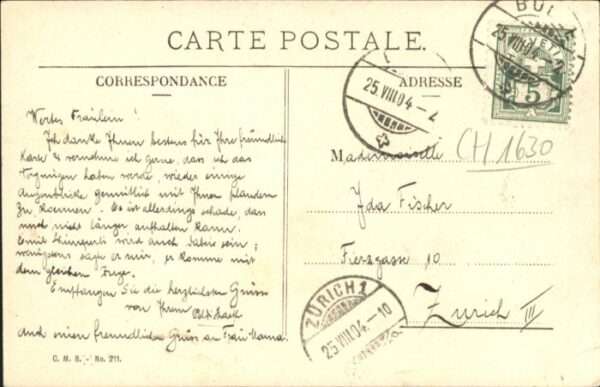 CARTE POSTALE.
CORRESPONDANCE
ADRESSE
Wertes Fräulein!
Ich danke Ihnen bestens für Ihre freundliche
Karte & vernehme ich gerne, dass ich das
Vergnügen haben werde, wieder einige
Augenblicke gemütlich mit Ihnen plaudern
zu können. Es ist allerdings schade, dass
noch nicht länger aufhalten kann.
Emil wird auch dabei sein;
wenigstens sagte er mir, er komme mit
dem gleichen Zuge.
Empfangen Sie die herzlichsten Grüsse
von Ihrem
und einen freundlichen Gruss an Frau Mama.
C. M. S. - No. 211.
BU
25.VIII.04
HELVETIA
5
25.VIII.04-4
CH 1630
Mademoiselle
Ida Fischer
10
Zürich III
ZÜRICH 1
25.VIII.04.-10